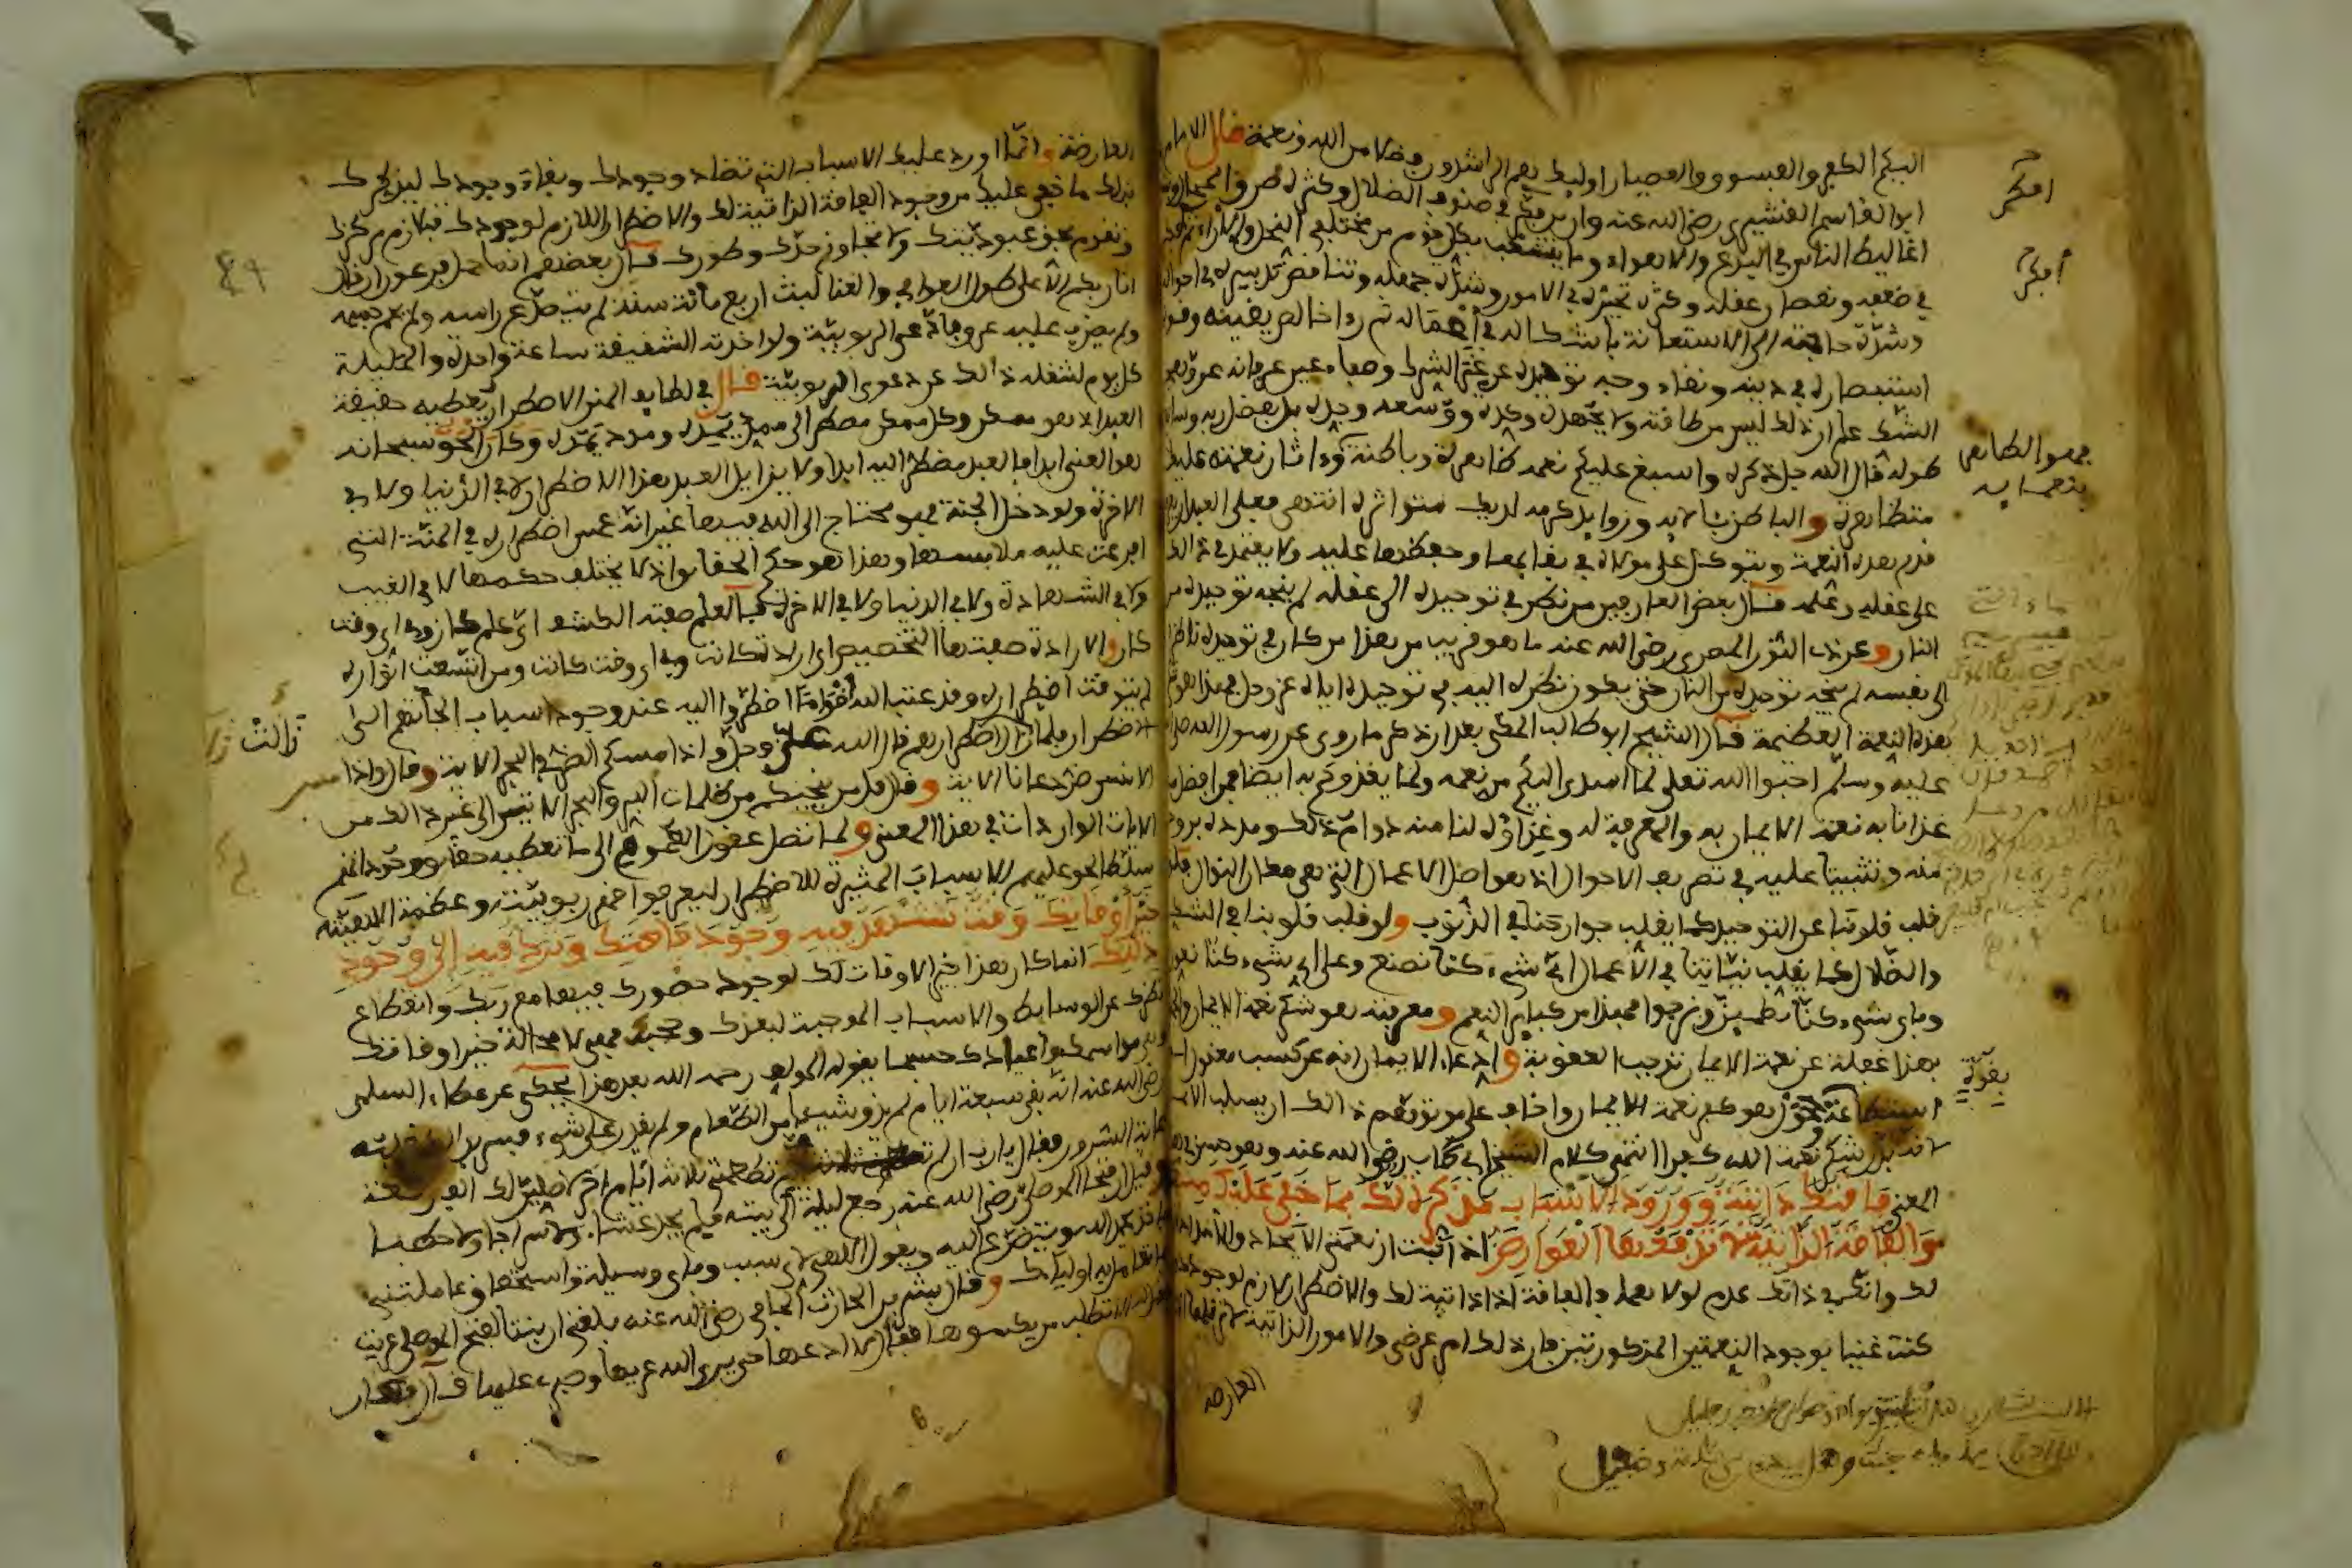 اليكم الكفر والفسوق والعصيان اوليك هم الراشدون فضلا من الله ونعمة قال الامام
ابو القاسم القشيري رضي الله عنه وان من فكر في صنوف الضلال وكثرة طرق المحال وشدة
اغاليط الناس في البدع والاهواء وما يتشعب بكل قوم من مختلفي النحل والاراء ثم فكر
في ضعفه ونقصان عقله وكثرة تحيره في الامور وشدة جهله وتناقض تدبيره في احواله
وشدة حاجته الى الاستعانة باشكاله في اعماله ثم راى خالص يقينه وقوة
استبصاره في دينه ونقاء وجه توحيده عن غبرة الشرك وصفاء عين عرفانه عن وهج
الشك علم ان ذلك ليس من طاقته ولا بجهده وكده ووسعه وجده بل بفضل ربه وسابق
طوله قال الله جل ذكره واسبغ عليكم نعمه ظاهرة وباطنة واثار نعمته عليك
متظاهرة والباطن وزوايد كرمه لديك متواترة انتهى فعلى العبد ان يعرف
قدر هذه النعمة ويتوكل على مولاه في بقايها وحفظها عليه ولا يعتمد في ذلك
على عقله وعلمه قال بعض العارفين من نظر في توحيده الى عقله لم ينجه توحيده من
النار وعن ذي النون المصري رضي الله عنه ما هو قريب من هذا من كان في توحيده ناظرا
الى نفسه لم ينجه توحيده من النار حتى يكون نظره اليه في توحيده اياه عز وجل فهذا هو
هذه النعمة العظيمة قال الشيخ ابو طالب المكي بعد ان ذكر ما روى عن رسول الله صلى
عليه وسلم احبوا الله تعلى لما اسدى اليكم من نعمه ولما يغذوكم به ايضا فمن افضل ما
غذانا به نعمة الايمان به والمعرفة له وغذاؤه لنا منه دوام ذلك ومدده بروح
منه وتثبيتنا عليه في تصريف الاحوال اذ هو اصل الاعمال التي هي مكان النوال فلو
قلب قلوبنا عن التوحيد كما يقلب جوارحنا في الذنوب ولو قلب قلوبنا في الشك
والضلال كما يقلب نياتنا في الاعمال اي شيء كنا نصنع وعلى اي شيء كنا نعول
وباي شيء كنا نطمئن ونرجوا فهذا من كباير النعم ومعرفته هو شكر نعمة الايمان والجهل
بهذا غفلة عن نعمة الايمان توجب العقوبة وادعاء الايمان انه عن كسب معقول او
استطاعة بقوة وحول هو كفر نعمة الايمان واخاف على من توهم ذلك ان يسلب الايمان
لانه بدل شكر نعمة الله كفرا انتهى كلام الشيخ ابي طالب رضي الله عنه وهو حسن في هذا
المعنى فاقتك لك ذاتية وورود الاسباب مذكرة لك بما خفي عليك منها
والفاقة الذاتية لا ترفعها العوارض اذا ثبت ان نعمتي الايجاد والامداد
لك وانك في ذاتك عدم لولاهما فالفاقة اذا ذاتية لك والاضطرار لازم لوجودك
كنت غنيا بوجود النعمتين المذكورتين فان ذلك امر عرضي والامور الذاتية لا ترفعها
العارضة
افكر
افكر
بقوة
العارضة وانما اورد عليك الاسباب التي تضاد وجودك وبقاء وجودك ليذكرك
بذلك ما خفي عليك من وجود الفاقة الذاتية لك والاضطرار اللازم لوجودك فتلازم مركزك
وتقوم بحق عبوديتك ولا تجاوز حدك وطورك قال بعضهم انما حمل فرعون ان قال
انا ربكم الاعلى طول العوافي والغنا لبث اربع مائة سنة لم يتصدع راسه ولم يحم جسمه
ولم يضرب عليه عرق فادعى الربوبية ولو اخذته الشقيقة ساعة واحدة والمليلة
كل يوم لشغله ذلك عن دعوى الربوبية قال في لطايف المنن الاضطرار تعطيه حقيقة
العبد اذ هو ممكن وكل ممكن مضطر الى ممد يمده ومدد يمده وكان الحق سبحانه
هو الغني ابدا فالعبد مضطر اليه ابدا ولا يزايل العبد هذا الاضطرار لا في الدنيا ولا في
الاخرة ولو دخل الجنة فهو محتاج الى الله فيها غير انه غمس اضطراره في المنة التي
افرغت عليه ملابسها وهذا هو حكم الحقايق اذ لا يختلف حكمها لا في الغيب
ولا في الشهادة ولا في الدنيا ولا في الاخرة فالعلم صفته الكشف اي علم كان وفي اي وقت
كان والارادة صفتها التخصيص اي ارادة كانت وفي اي وقت كانت ومن اتسعت انواره
لم يتوقت اضطراره وقد عتب الله اقواما اضطروا اليه عند وجود اسباب الجاتهم الى
الاضطرار فلما زال زال اضطرارهم قال الله عز وجل واذا مسكم الضر في البحر الاية وقال واذا مس
الانسن ضر دعانا الاية وقال قل من ينجيكم من ظلمات البر والبحر الايتين الى غير ذلك من
الايات الواردات في هذا المعنى ولما لم تصل عقول العموم الى ما تعطيه حقايق وجودهم
سلط الحق عليهم الاسباب المثيرة للاضطرار ليعرفوا قهر ربوبيته وعظمة الاهيته
خير اوقاتك وقت تشهد فيه وجود فاقتك وترد فيه الى وجود
ذلتك انما كان هذا خير الاوقات لك لوجود حضورك فيها مع ربك وانقطاع
نظرك عن الوسايط والاسباب الموجبة لبعدك وحجبك فهي لا محالة خير اوقاتك
وهي مواسمك واعيادك حسبما يقوله المولف رحمه الله بعد هذا يحكى عن عطاء السلمي
رضي الله عنه انه بقي سبعة ايام لم يذق شيئا من الطعام ولم يقدر على شيء فسر قلبه
بذلك غاية السرور فقال يا رب ان لم تطعمني ثلاثة ايام اخر لاصلين لك الف ركعة
وقيل ان فتحا الموصلي رضي الله عنه رجع ليلة الى بيته فلم يجد عشاء ولا سراجا ولا حطبا
فاخذ يحمد الله ويتضرع اليه ويقول الهي لاي سبب وباي وسيلة واستحقاق عاملتني
بما تعامل به اولياءك وقال بشر بن الحارث الحافي رضي الله عنه بلغني ان بنتا لفتح الموصلي عريت
فقيل له الا تطلب من يكسوها فقال لا ادعها حتى يرى الله عريها وصبري عليها قال وكان
زالت